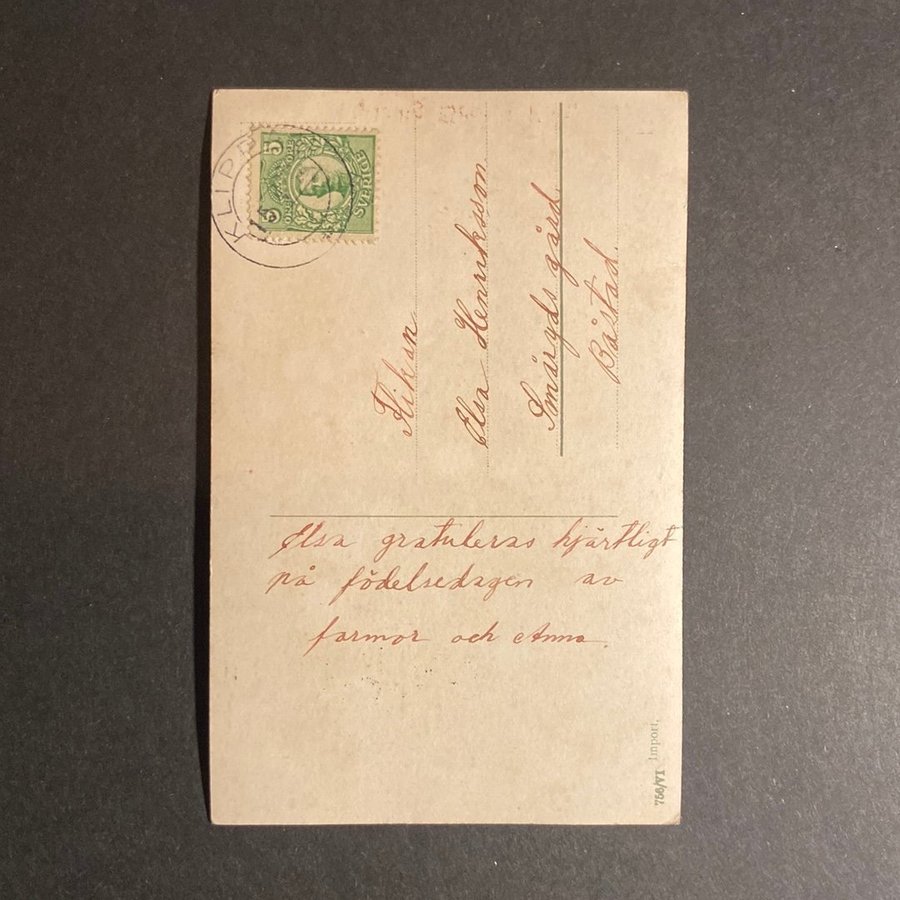 KLIPP
5 5
SVERIGE
Flikan
Elsa Henriksson
Smäryds gård
Båstad.
Elsa gratuleras hjärtligt
på födelsedagen av
farmor och Anna
756/VI Import.